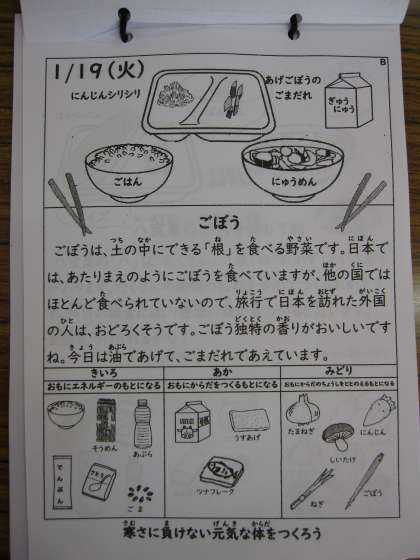 1/19(火)
B
にんじんシリシリ
あげごぼうの
ごまだれ
ぎゅう
にゅう
ごはん
にゅうめん
ごぼう
ごぼうは、土の中にできる「根」を食べる野菜です。日本で
は、あたりまえのようにごぼうを食べていますが、他の国では
ほとんど食べられていないので、旅行で日本を訪れた外国
の人は、おどろくそうです。ごぼう独特の香りがおいしいです
ね。今日は油であげて、ごまだれであえています。
きいろ
おもにエネルギーのもとになる
あか
おもにからだをつくるもとになる
みどり
おもにからだのちょうしをととのえるもとになる
そうめん
あぶら
でんぷん
さとう
ごま
うすあげ
ツナフレーク
たまねぎ
にんじん
しいたけ
ねぎ
ごぼう
寒さに負けない元気な体をつくろう